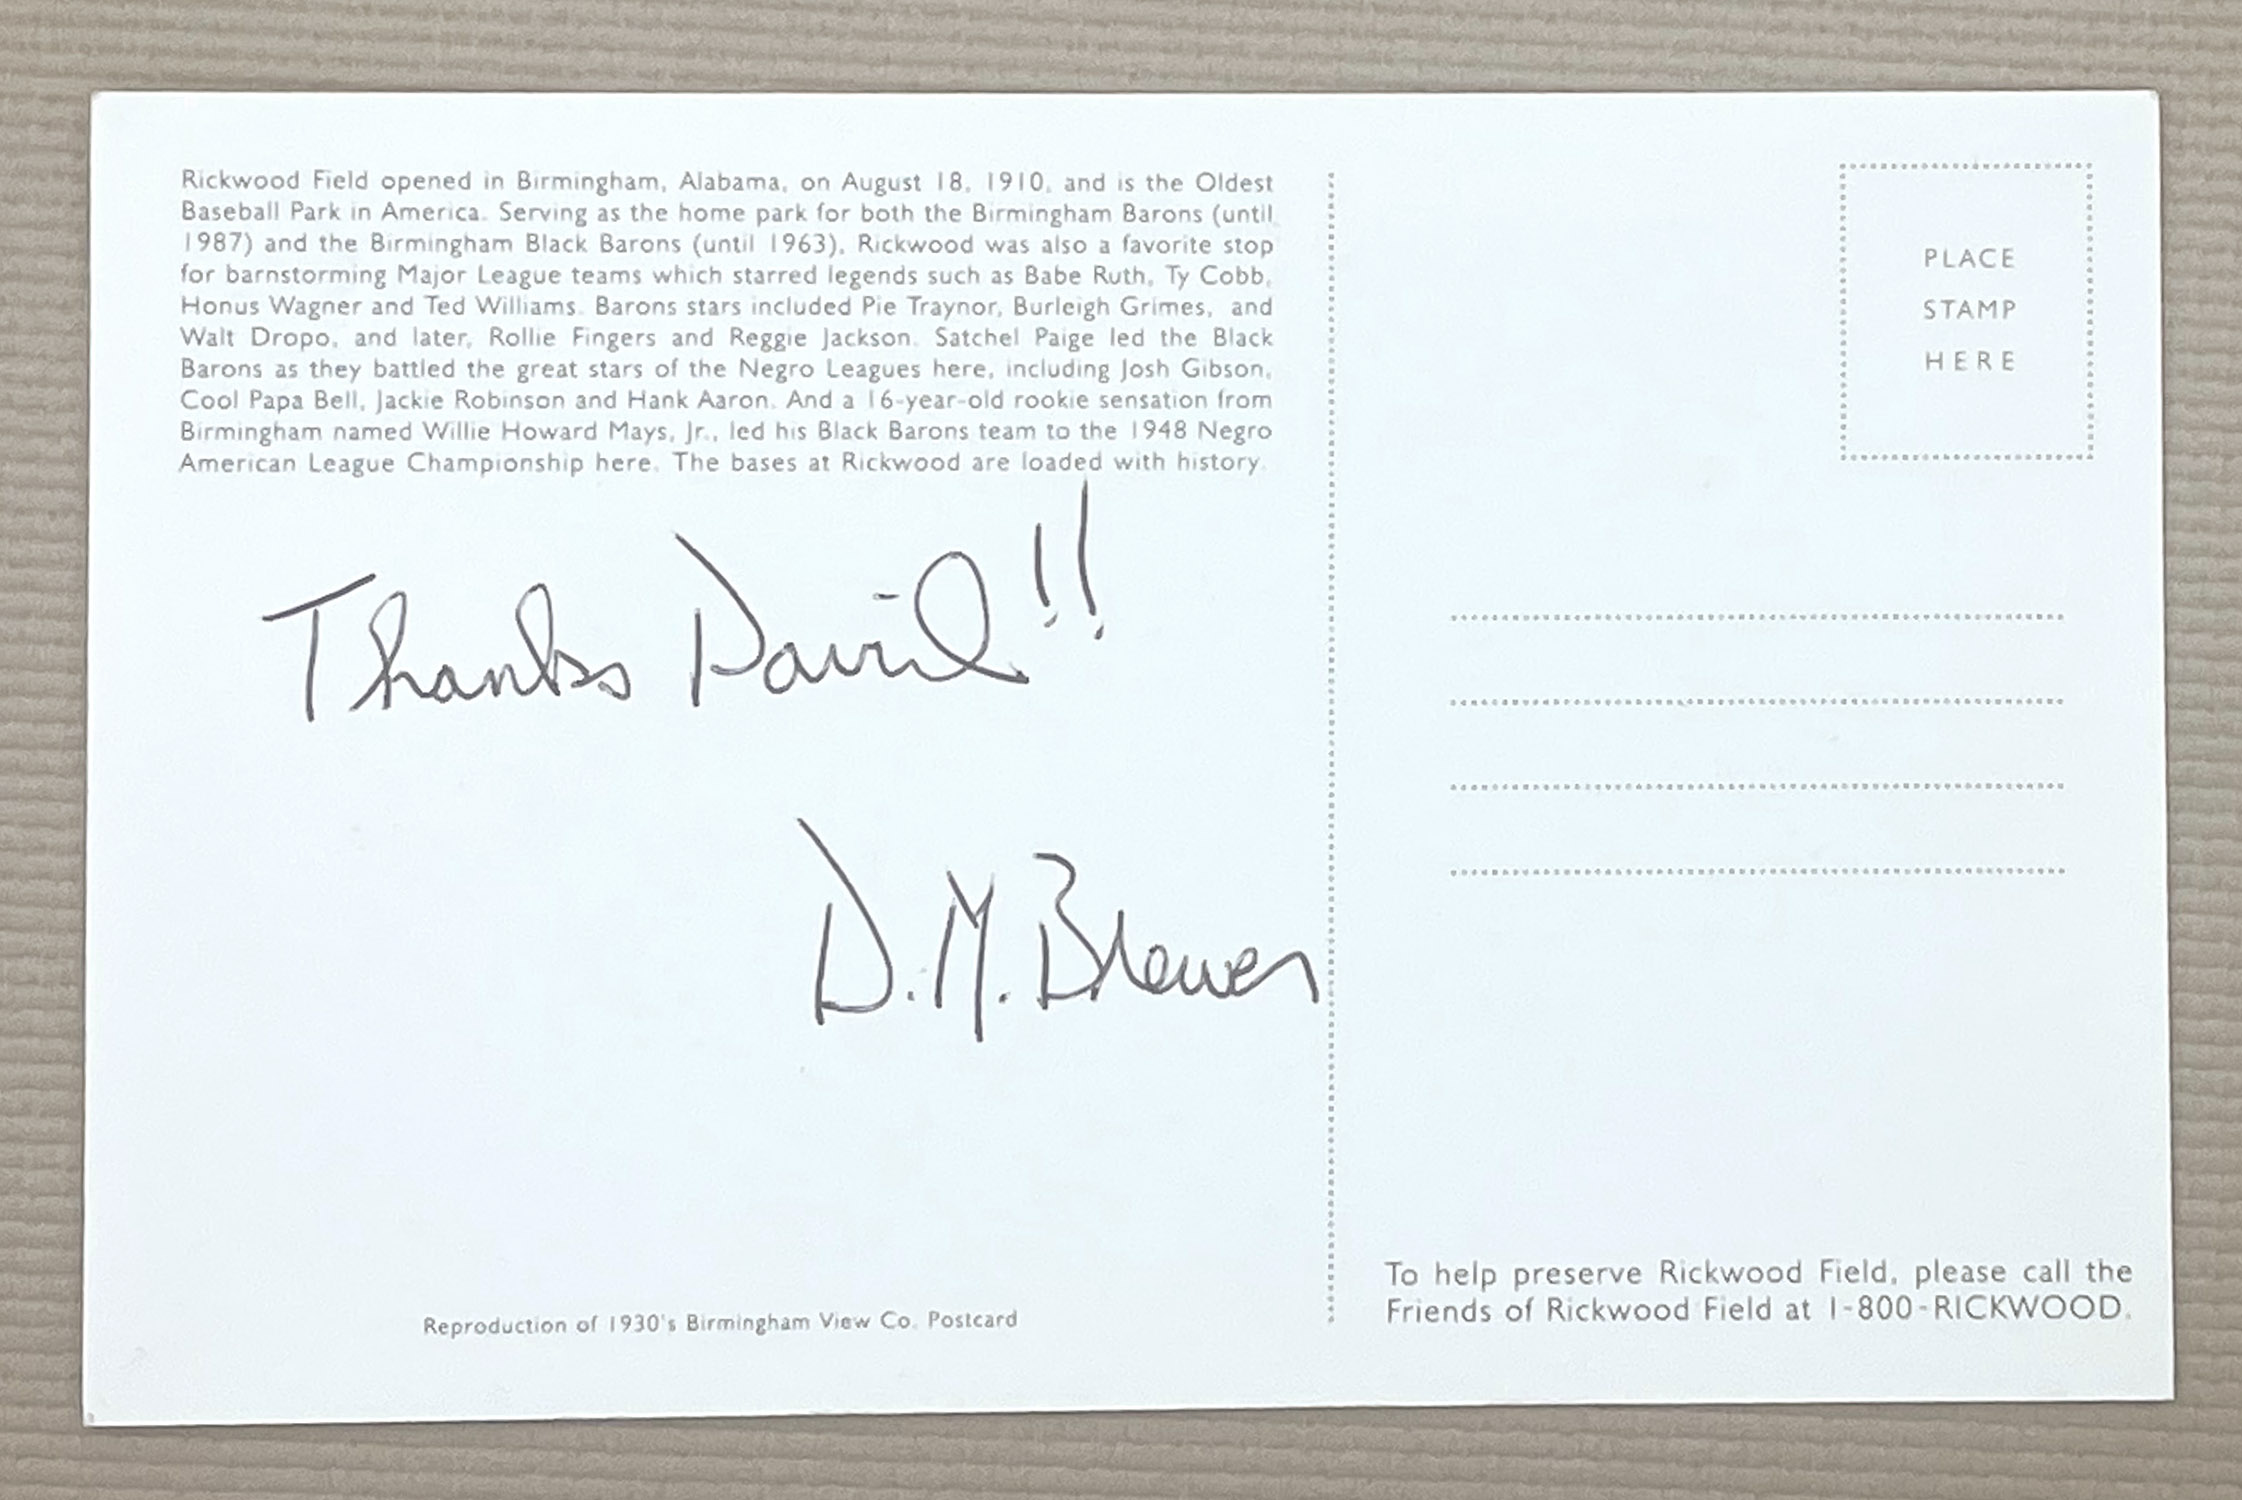 Rickwood Field opened in Birmingham, Alabama, on August 18, 1910, and is the Oldest
Baseball Park in America. Serving as the home park for both the Birmingham Barons (until
1987) and the Birmingham Black Barons (until 1963), Rickwood was also a favorite stop
for barnstorming Major League teams which starred legends such as Babe Ruth, Ty Cobb,
Honus Wagner and Ted Williams. Barons stars included Pie Traynor, Burleigh Grimes, and
Walt Dropo, and later, Rollie Fingers and Reggie Jackson. Satchel Paige led the Black
Barons as they battled the great stars of the Negro Leagues here, including Josh Gibson,
Cool Papa Bell, Jackie Robinson and Hank Aaron. And a 16-year-old rookie sensation from
Birmingham named Willie Howard Mays, Jr., led his Black Barons team to the 1948 Negro
American League Championship here. The bases at Rickwood are loaded with history.
Thanks David!!
D.M. Brewer
Reproduction of 1930's Birmingham View Co. Postcard
PLACE
STAMP
HERE
To help preserve Rickwood Field, please call the
Friends of Rickwood Field at 1-800-RICKWOOD.